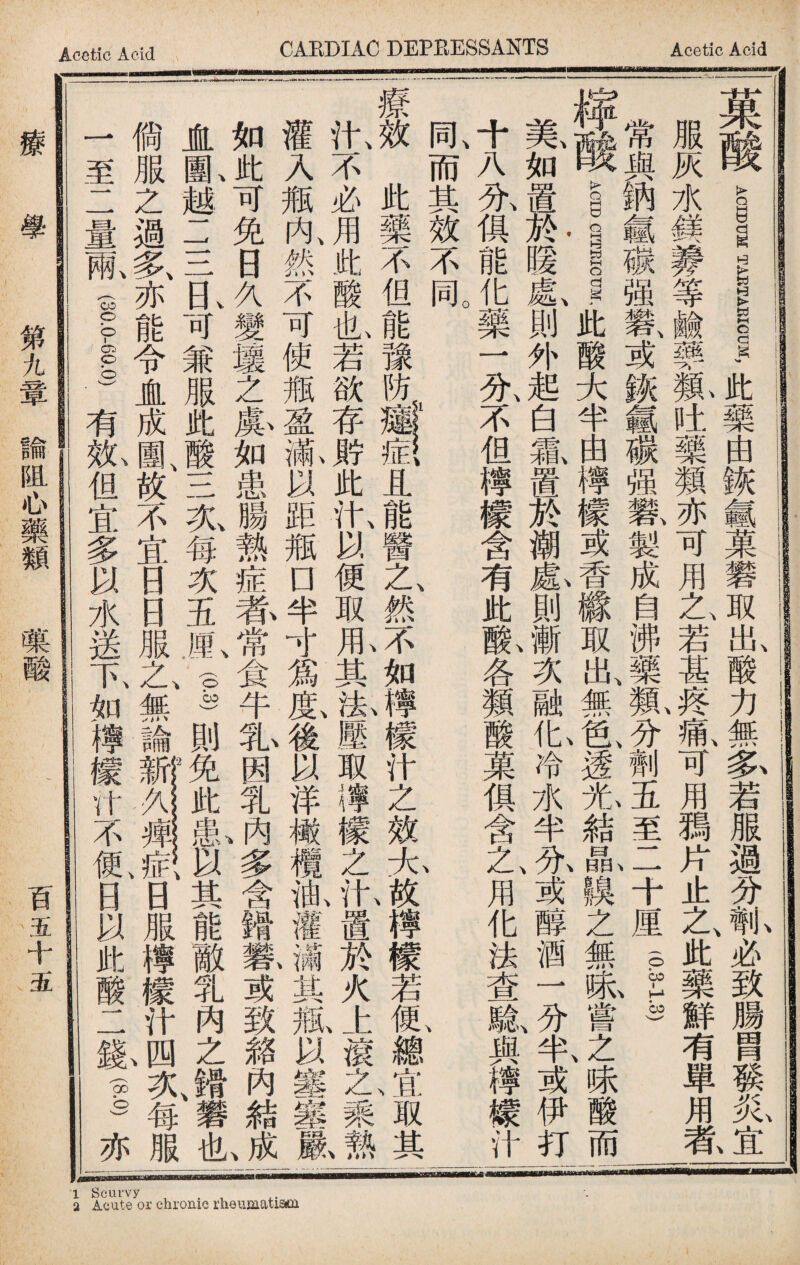 Acetic Acid
CARDIAC DEPRESSANTS
Acetic Acid
菓酸 ACIDUM TARTARICUM, 此藥由鉃䨺菓礬取出、酸力無多、若服過分劑、必致腸胃發炎、宜
服灰水鎂養等鹼藥類、吐藥類亦可用之、若甚疼痛、可用鴉片止之、此藥鮮有單用者、
常與鈉䨺碳强礬、或鉃䨺碳强礬、製成自沸藥類、分劑五至二十厘 (0.3-1.3)
檸酸 ACID CITRICUM. 此酸大半由檸檬或香櫞取出、無色、透光、結晶、齅之無味、嘗之味酸而
美、如置於暖處、則外起白霜、置於潮處、則漸次融化、冷水半分、或醇酒一分半、或伊打
十八分、俱能化藥一分、不但檸檬含有此酸、各類酸菓俱含之、用化法查騐、與檸檬汁
同、而其效不同。
療效 此藥不但能豫防癦症1且能醫之、然不如檸檬汁之效大、故檸檬若便、總宜取其
汁、不必用此酸也、若欲存貯此汁、以便取用、其法、壓取檸檬之汁、置於火上滾之、乘熱
灌入瓶内、然不可使瓶盈滿、以距瓶口半寸爲度、後以洋橄欖油、灌滿其瓶、以塞塞嚴、
如此可免日久變壞之虞、如患腸熱症者、常食牛乳、因乳内多含鎉礬、或致絡内結成
血團、越二三日、可兼服此酸三次、每次五厘、(0.3) 則免此患、以其能敵乳内之鎉礬也、
倘服之過多、亦能令血成團、故不宜日日服之、無論新2久痺症、日服檸檬汁四次、每服
一至二量兩、(30.0-60.0) 有效、但宜多以水送下、如檸檬汁不便、日以此酸二錢、(8.0) 亦
療學 第九章 論阻心藥類 菓酸 百五十五
1 Scurvy
2 Acute or chronic rheumatism